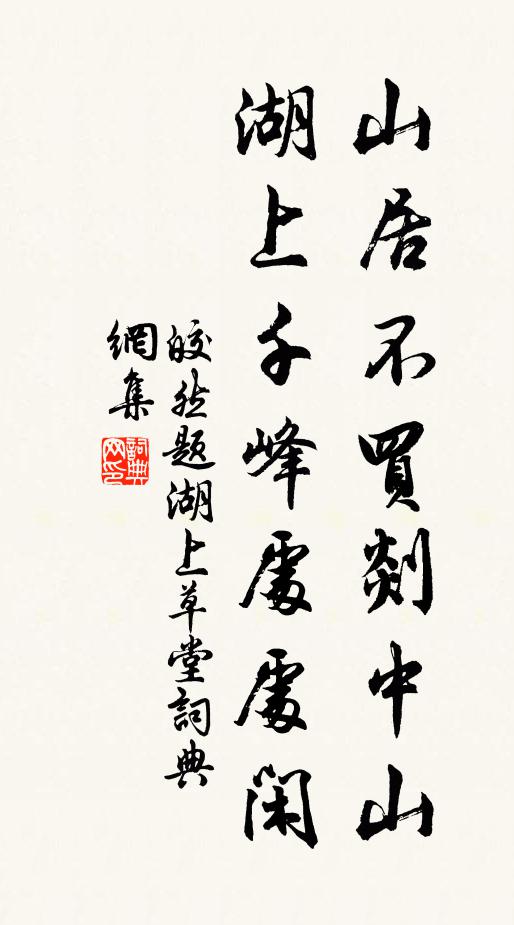 山居不買剡中山
湖上千峰處處閑
皎然題湖上草堂詞典
網集
詞典
网印